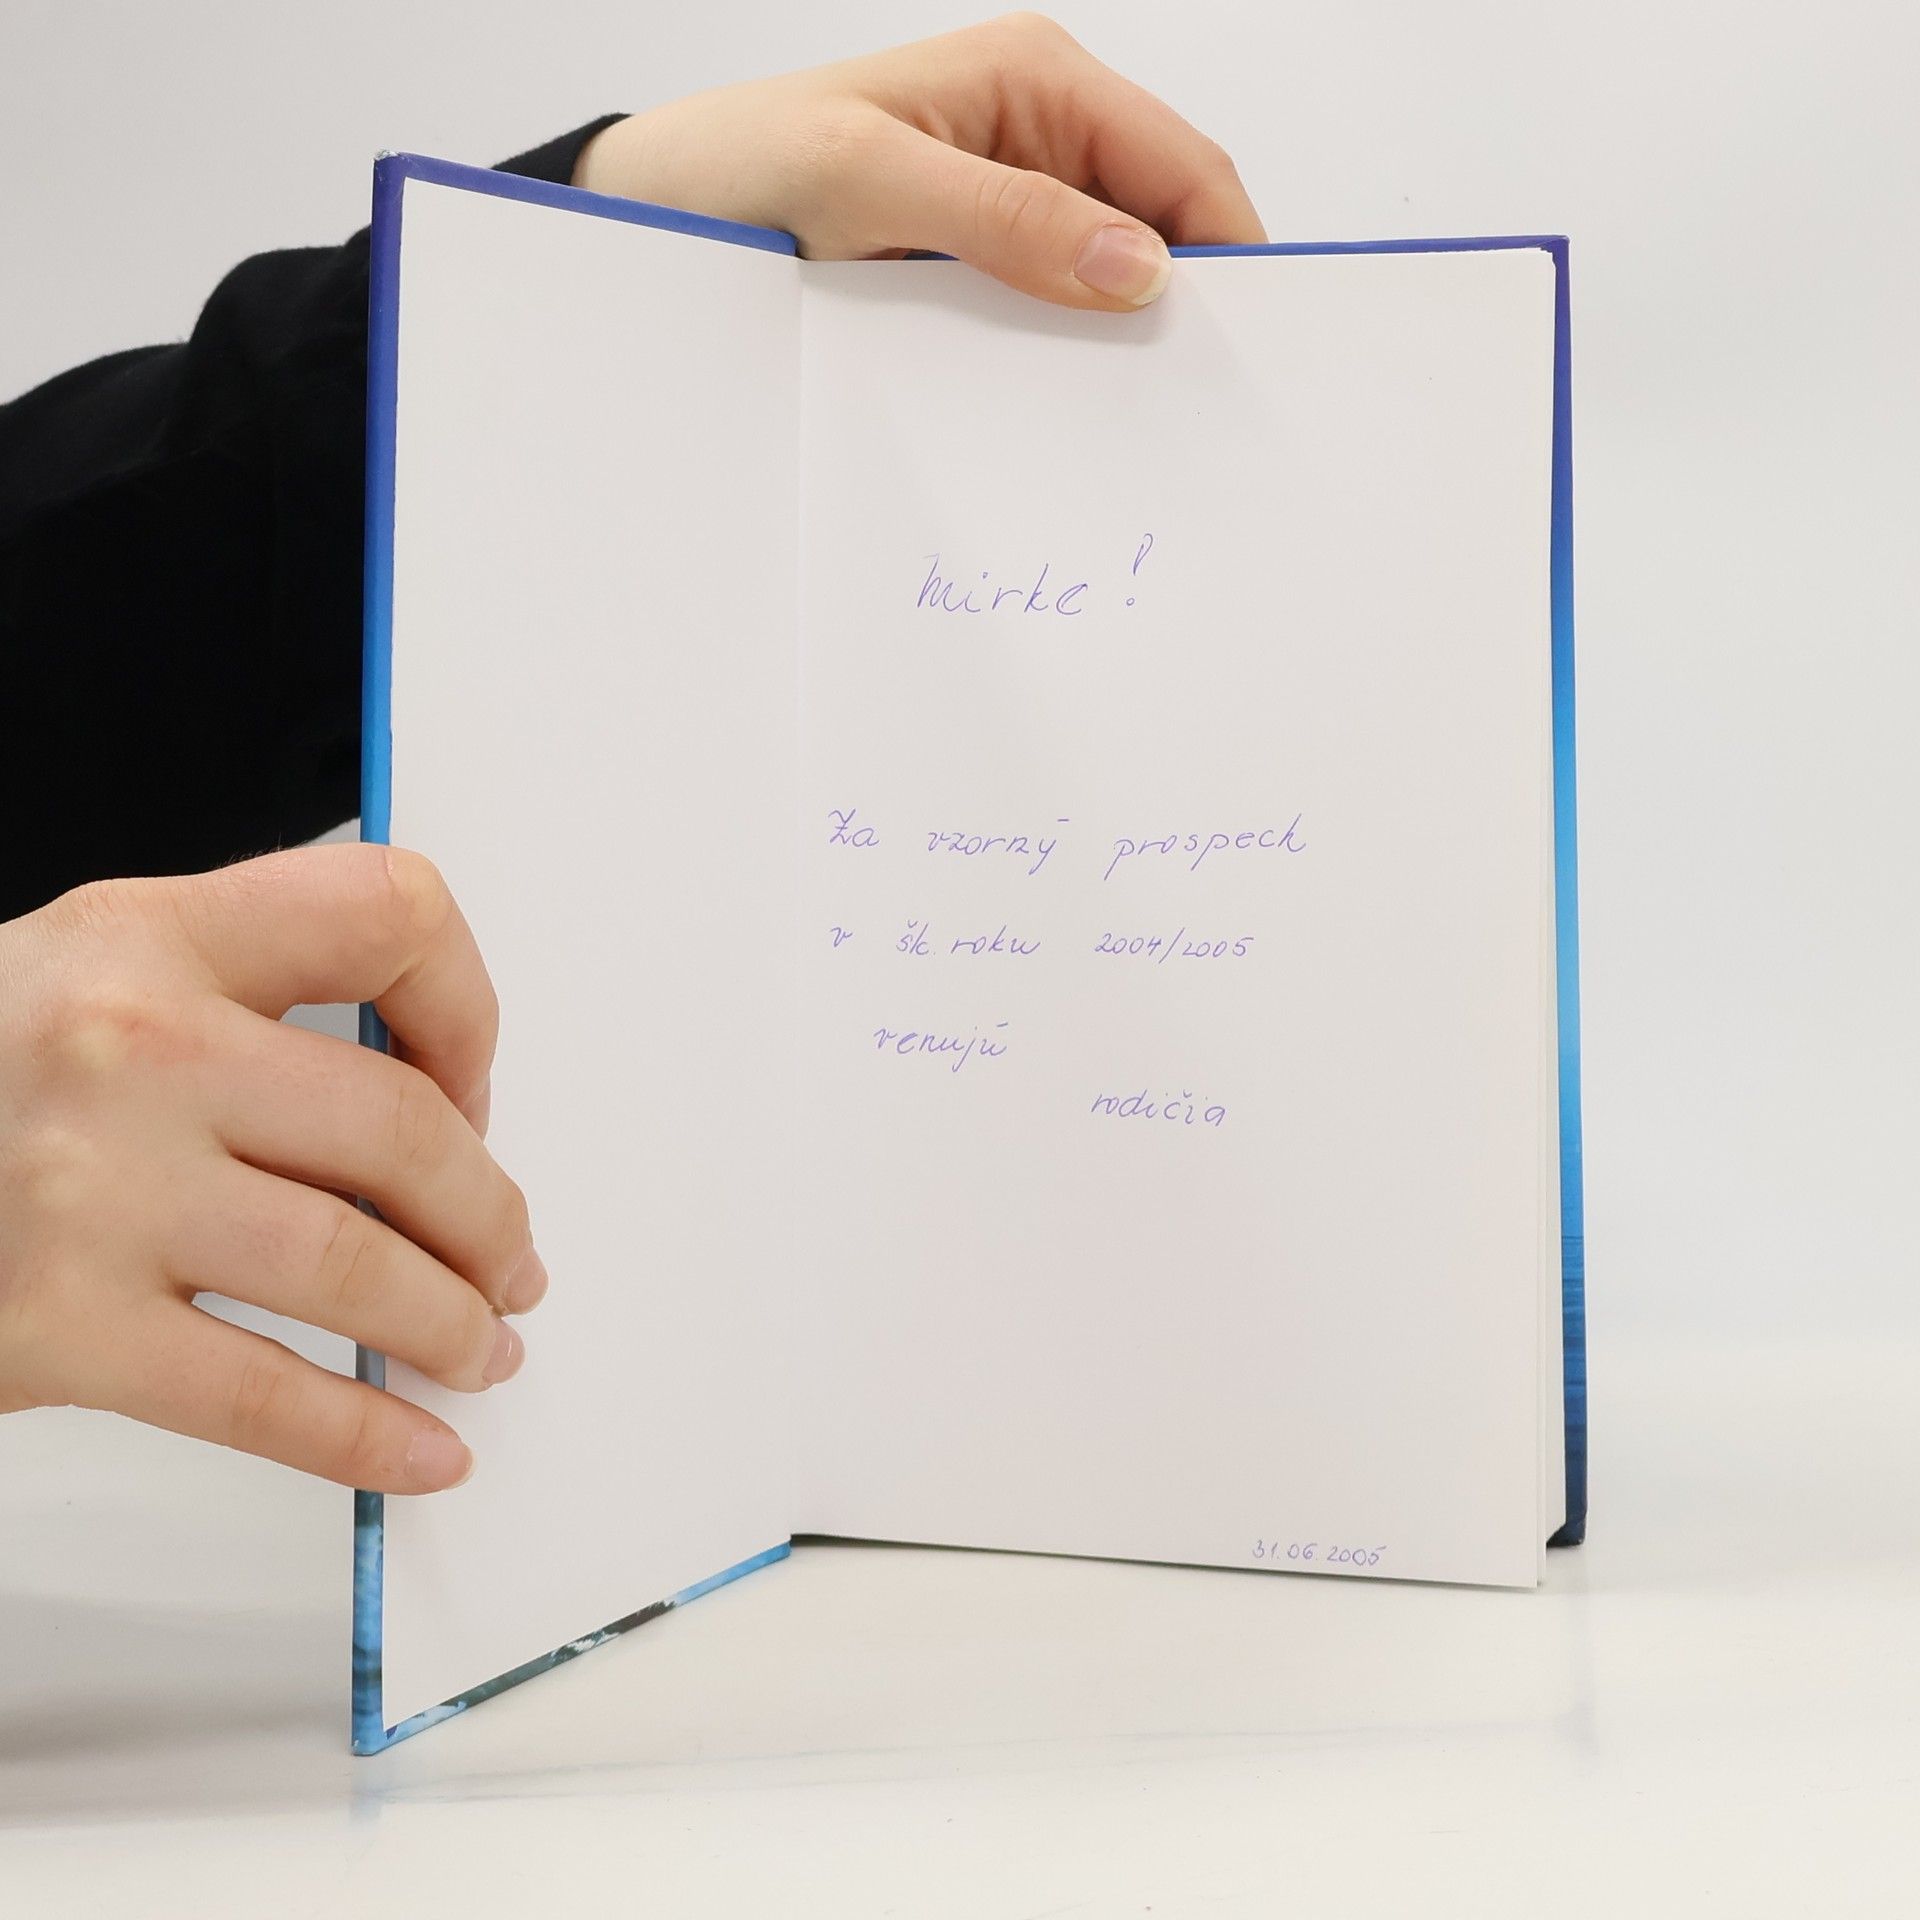 Mirke!
Za vzorný prospech
v šk. roku 2004/2005
venujú
rodičia
31.06.2005